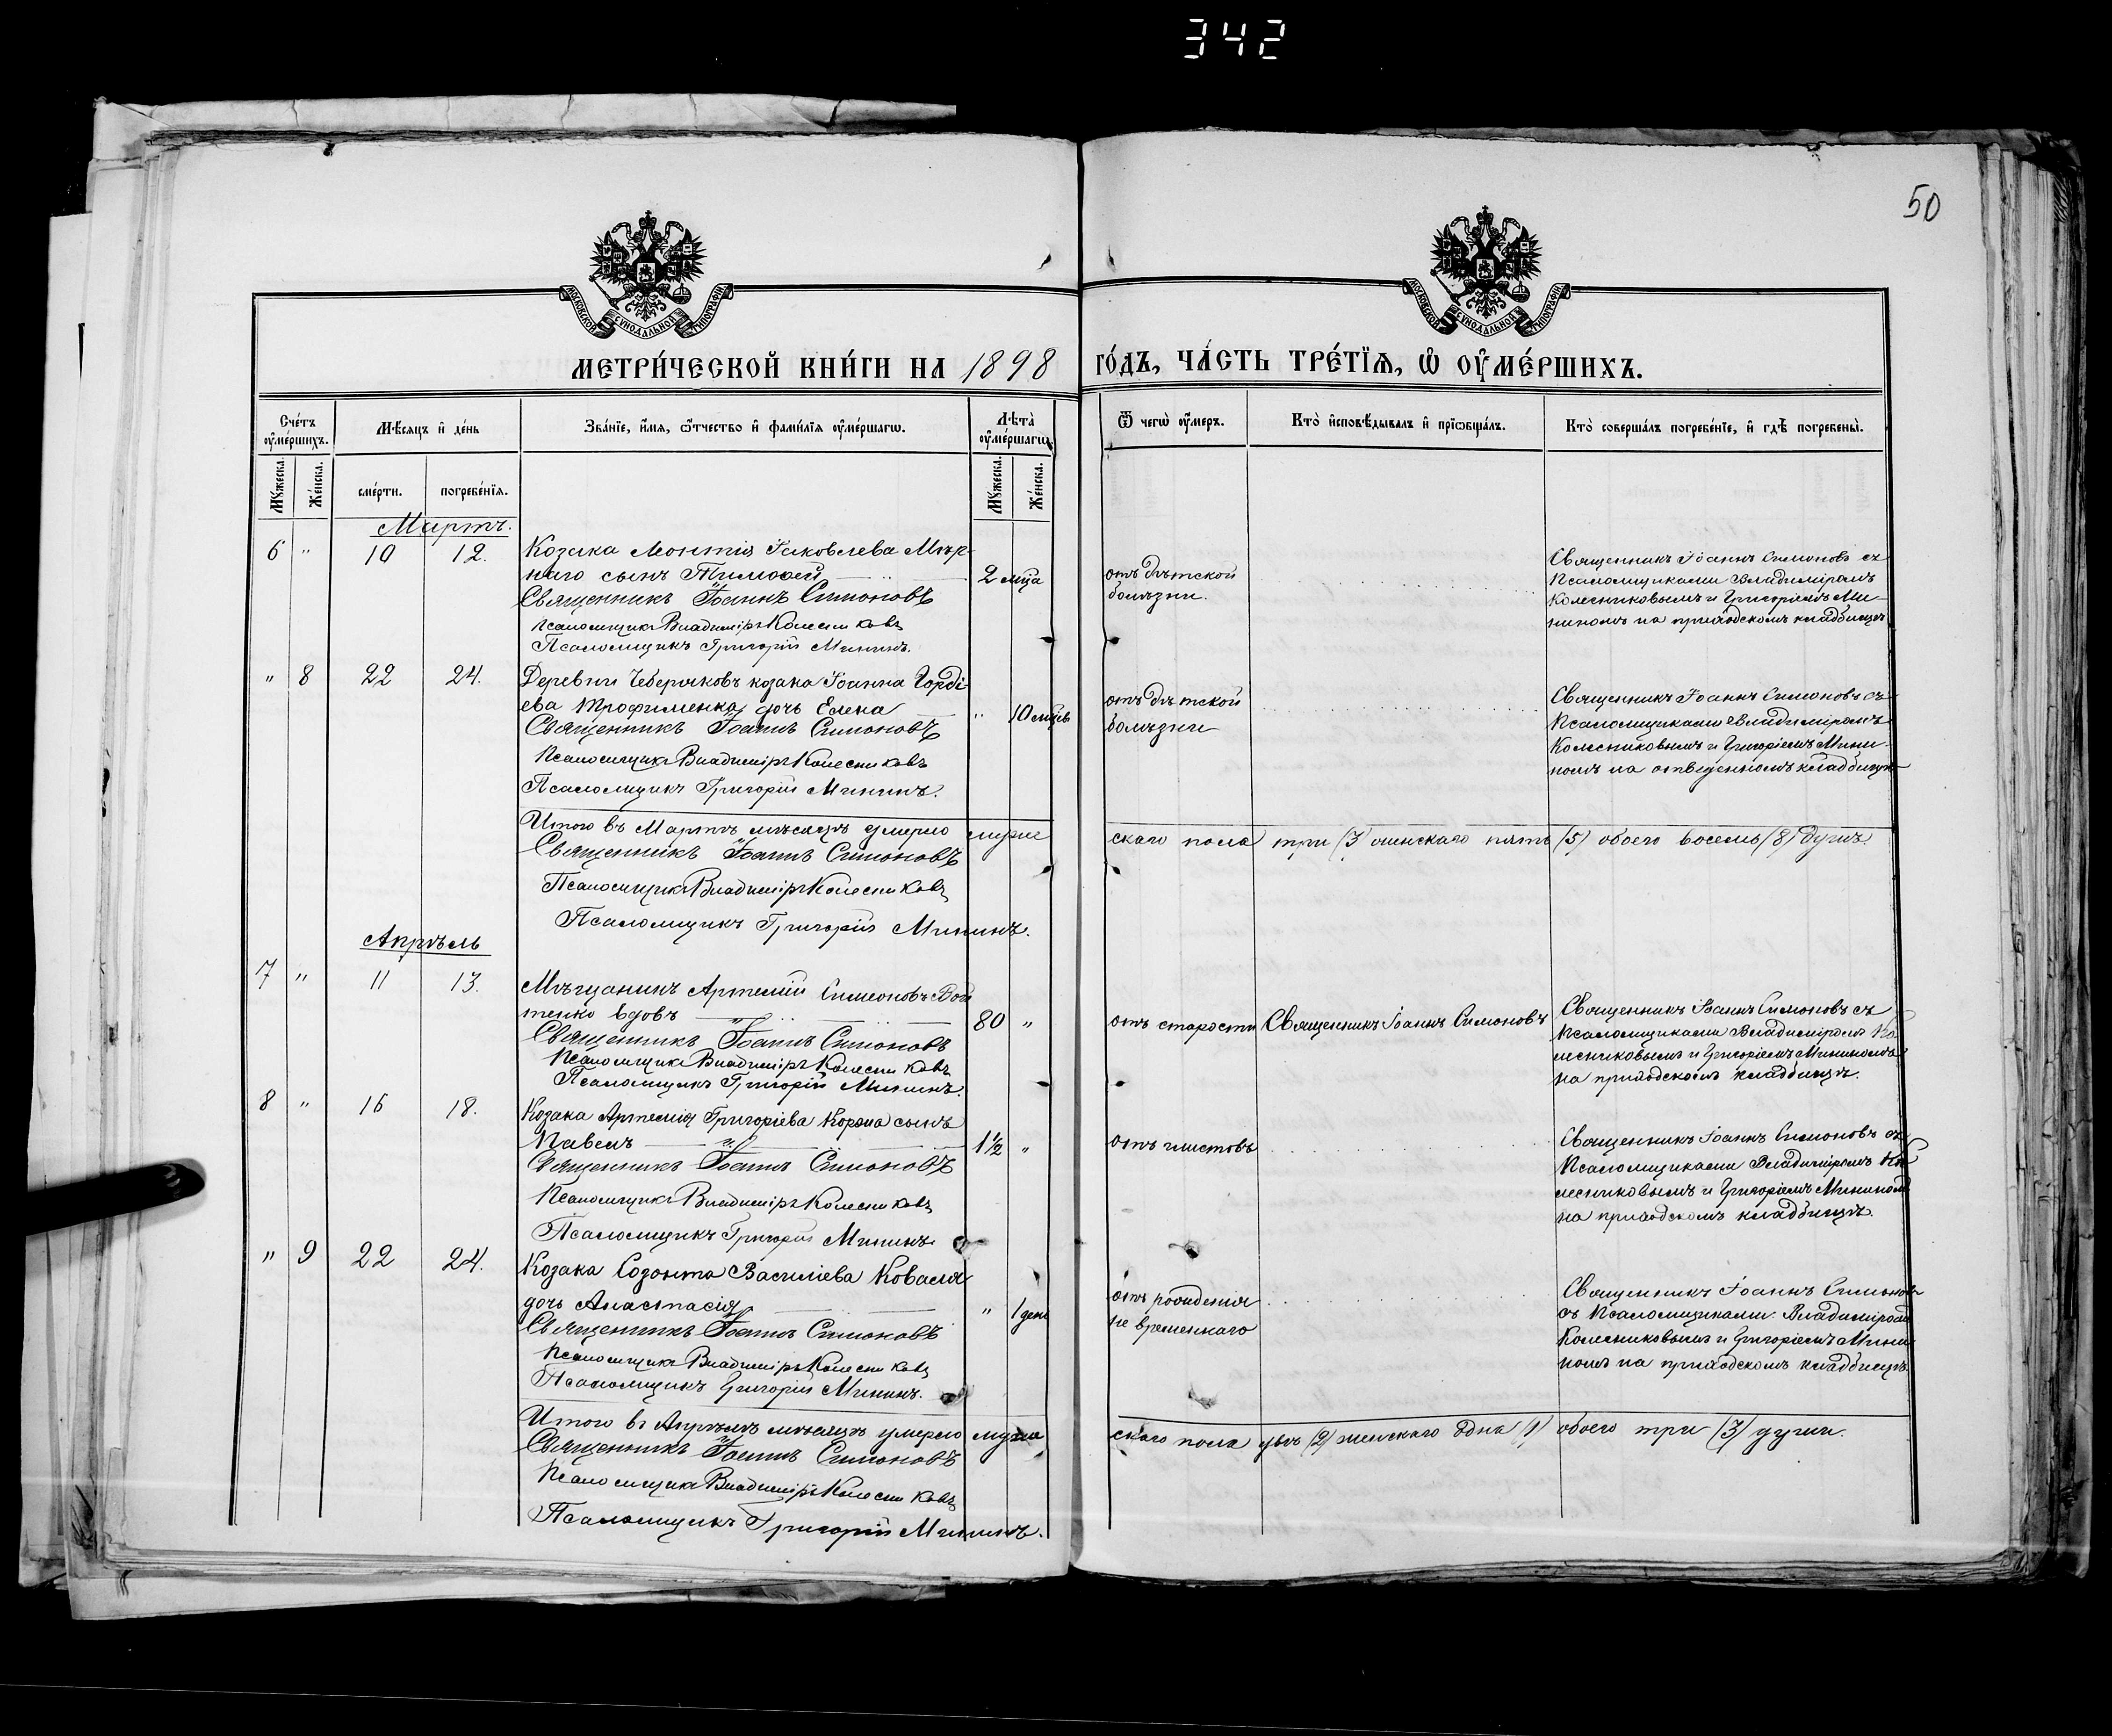 342
50
МОСКОВСКОЙ СѴНОДАЛЬНОЙ ТИПОГРАФІИ
МОСКОВСКОЙ СѴНОДАЛЬНОЙ ТИПОГРАФІИ
МЕТРИ́ЧЕСКОЙ КНИ́ГИ НА 1898 ГО́ДЪ, ЧА́СТЬ ТРЕ́ТЇѦ, Ѽ ОУ҆МЕ́РШИХЪ.
Сче́тъ оу҆ме́ршихъ.
Мꙋ́жеска.
Же́нска.
Мѣ́сяцъ и҆ де́нь
сме́рти.
погребе́нїѧ.
Зва́нїе, и҆́мѧ, ѻ҆́тчество и҆ фамі́лїѧ оу҆ме́ршагѡ.
Лѣ́та оу҆ме́ршагѡ.
Мꙋ́жеска.
Же́нска.
Ѿ чегѡ̀ оу҆́меръ.
Кто̀ и҆сповѣ́дывалъ и҆ прїѡбща́лъ.
Кто̀ соверша́лъ погребе́нїе, и҆ гдѣ̀ погребены̀.
Мартъ.
6 " 10 12.
Козака Леонтія Іаковлева Мир-
наго сынъ Тимоѳей
2 мца
Священникъ Іоаннъ Симоновъ
Псаломщикъ Владиміръ Колесниковъ
Псаломщикъ Григорій Мининъ.
отъ дѣтской
болѣзни.
Священникъ Іоаннъ Симоновъ съ
Псаломщиками Владиміромъ
Колесниковымъ и Григоріемъ Ми-
ниномъ на приходскомъ кладбищѣ
" 8 22 24.
Деревни Чеберяковъ козака Іоанна Горді-
ева Трофименка дочь Елена
" 10 мцевъ
Священникъ Іоаннъ Симоновъ
Псаломщикъ Владиміръ Колесниковъ
Псаломщикъ Григорій Мининъ.
отъ дѣтской
болѣзни
Священникъ Іоаннъ Симоновъ съ
Псаломщиками Владиміромъ
Колесниковымъ и Григоріемъ Мини-
номъ на отведенномъ кладбищѣ
Итого въ Мартѣ мѣсяцѣ умерло муже
скаго пола три (3) женскаго пять (5) обоего восемь (8) душъ.
Священникъ Іоаннъ Симоновъ
Псаломщикъ Владиміръ Колесниковъ
Псаломщикъ Григорій Мининъ.
Апрѣль
7 " 11 13.
Мѣщанинъ Артемій Симеоновъ Вой
тенко вдовъ
80 "
Священникъ Іоаннъ Симоновъ
Псаломщикъ Владиміръ Колесниковъ
Псаломщикъ Григорій Мининъ.
отъ старости
Священникъ Іоаннъ Симоновъ
Священникъ Іоаннъ Симоновъ съ
Псаломщиками Владиміромъ Ко
лесниковымъ и Григоріемъ Мининомъ
на приходскомъ кладбищѣ.
8 " 16 18.
Козака Артемія Григоріева Корона сынъ
Павелъ
1½ "
Священникъ Іоаннъ Симоновъ
Псаломщикъ Владиміръ Колесниковъ
Псаломщикъ Григорій Мининъ
отъ глистовъ
Священникъ Іоаннъ Симоновъ съ
Псаломщиками Владиміромъ Ко
лесниковымъ и Григоріемъ Мининомъ
на приходскомъ кладбищѣ.
" 9 22 24.
Козака Созонта Василіева Коваля
дочь Анастасія
" 1 день
Священникъ Іоаннъ Симоновъ
Псаломщикъ Владиміръ Колесниковъ
Псаломщикъ Григорій Мининъ.
отъ рожденія
не временнаго
Священникъ Іоаннъ Симоновъ
съ Псаломщиками Владиміромъ
Колесниковымъ и Григоріемъ Мини
номъ на приходскомъ кладбищѣ.
Итого въ Апрѣлѣ мѣсяцѣ умерло муже
скаго пола двѣ (2) женскаго одна (1) обоего три (3) души.
Священникъ Іоаннъ Симоновъ
Псаломщикъ Владиміръ Колесниковъ
Псаломщикъ Григорій Мининъ.